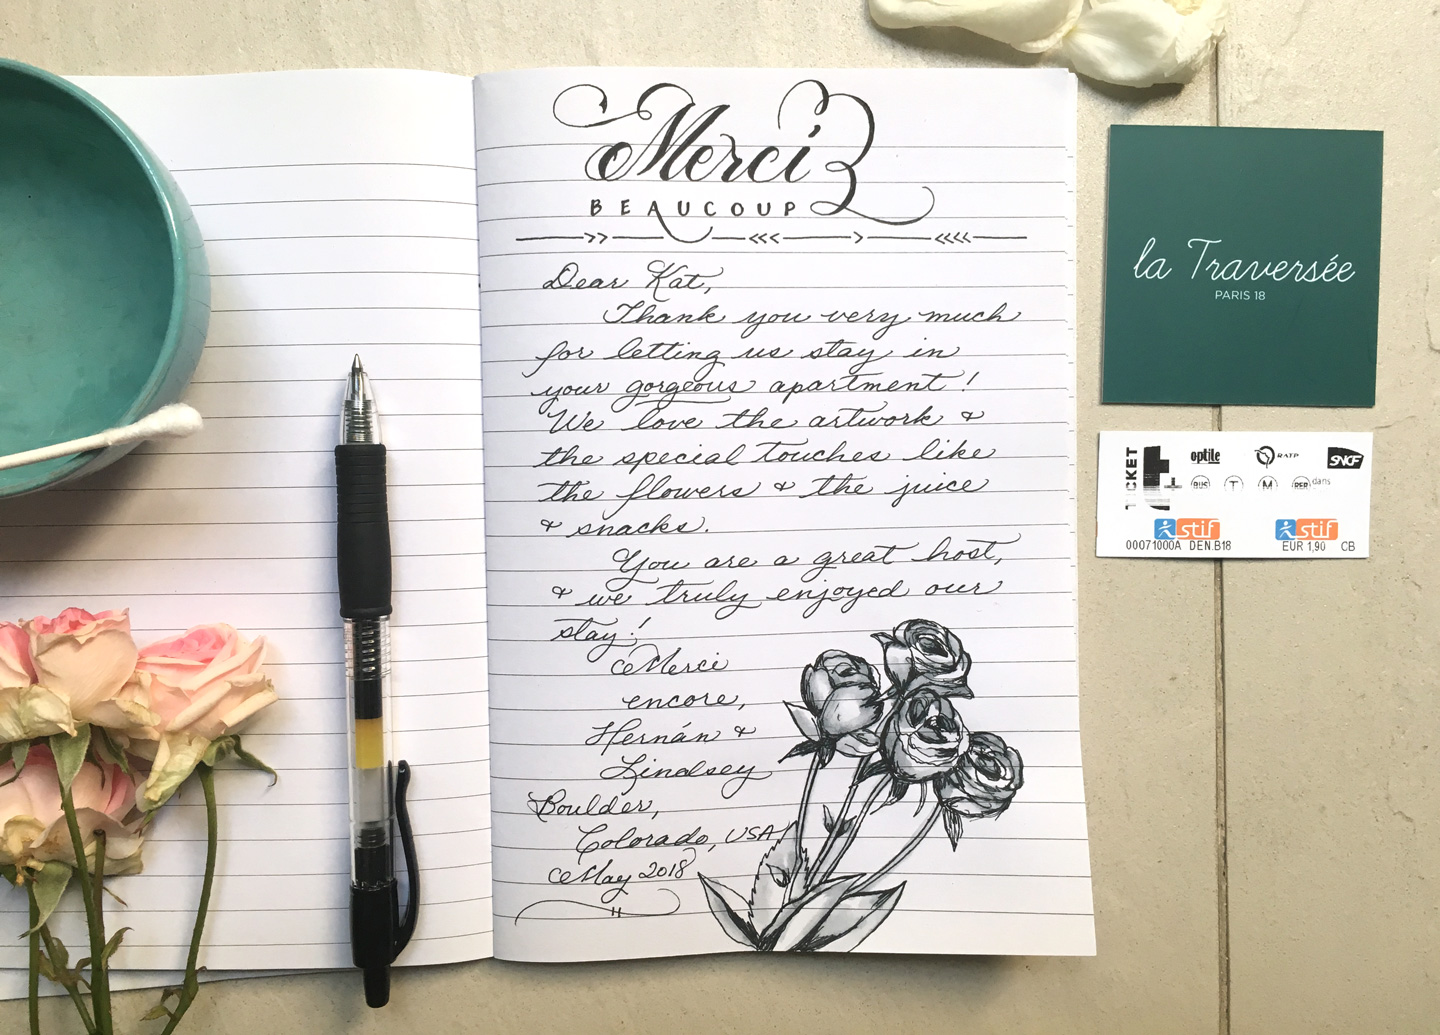 Merci
BEAUCOUP
Dear Kat,
Thank you very much
for letting us stay in
your gorgeous apartment!
We love the artwork &
the special touches like
the flowers & the juice
& snacks.
You are a great host,
& we truly enjoyed our
stay!
Merci
encore,
Hernán &
Lindsey
Boulder,
Colorado, USA
May 2018
la Traversée
PARIS 18
TICKET
t+
optile
RATP
SNCF
BUS T M RER dans
stif
stif
00071000A DEN.B18
EUR 1,90 CB